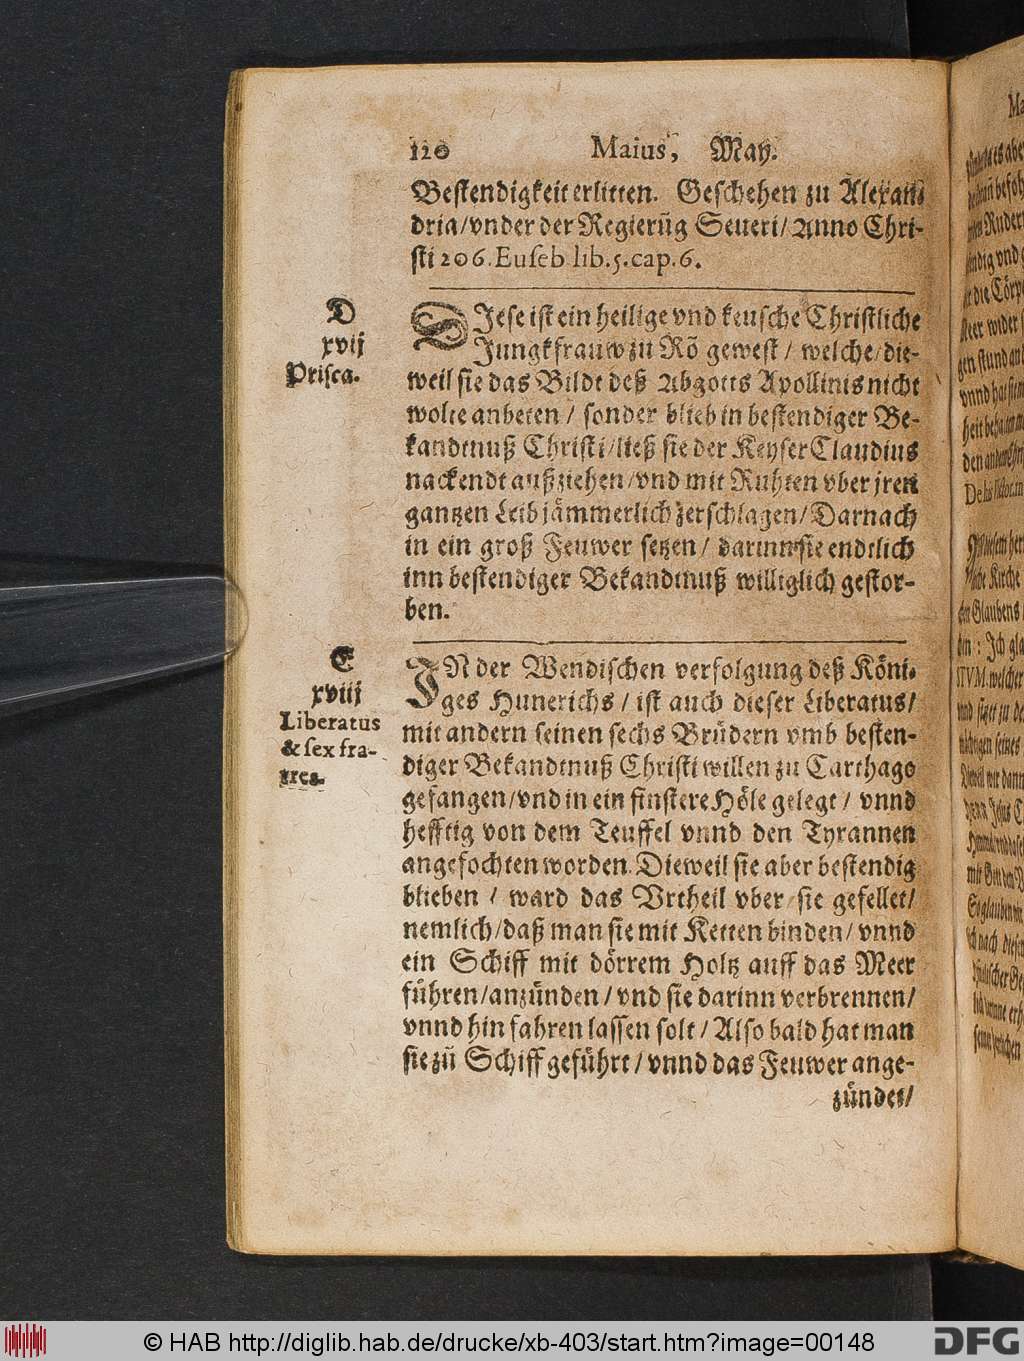 120 Maius, May.
Bestendigkeit erlitten. Geschehen zu Alexan-
dria/vnder der Regierũg Seueri/Anno Chri-
sti 206. Euseb lib. 5. cap. 6.
D
xvij
Prisca.
DIese ist ein heilige vnd keusche Christliche
Jungkfrauw zu Rõ gewest / welche/die-
weil sie das Bildt deß Abgotts Apollinis nicht
wolte anbeten / sonder blieb in bestendiger Be-
kandtnuß Christi/ließ sie der Keyser Claudius
nackendt außziehen/vnd mit Ruhten vber jren
gantzen Leib jämmerlich zerschlagen/Darnach
in ein groß Feuwer setzen/ darinn sie endtlich
inn bestendiger Bekandtnuß williglich gestor-
ben.
E
xviij
Liberatus
& sex fra-
tres.
IN der Wendischen verfolgung deß Köni-
ges Hunerichs / ist auch dieser Liberatus/
mit andern seinen sechs Brüdern vmb besten-
diger Bekandtnuß Christi willen zu Carthago
gefangen/vnd in ein finstere Höle gelegt / vnnd
hefftig von dem Teuffel vnnd den Tyrannen
angefochten worden. Dieweil sie aber bestendig
blieben / ward das Vrtheil vber sie gefellet/
nemlich/daß man sie mit Ketten binden/ vnnd
ein Schiff mit dörrem Holtz auff das Meer
führen/anzünden/vnd sie darinn verbrennen/
vnnd hin fahren lassen solt/Also bald hat man
sie zů Schiff geführt/vnnd das Feuwer ange-
zündet/
© HAB http://diglib.hab.de/drucke/xb-403/start.htm?image=00148
DFG